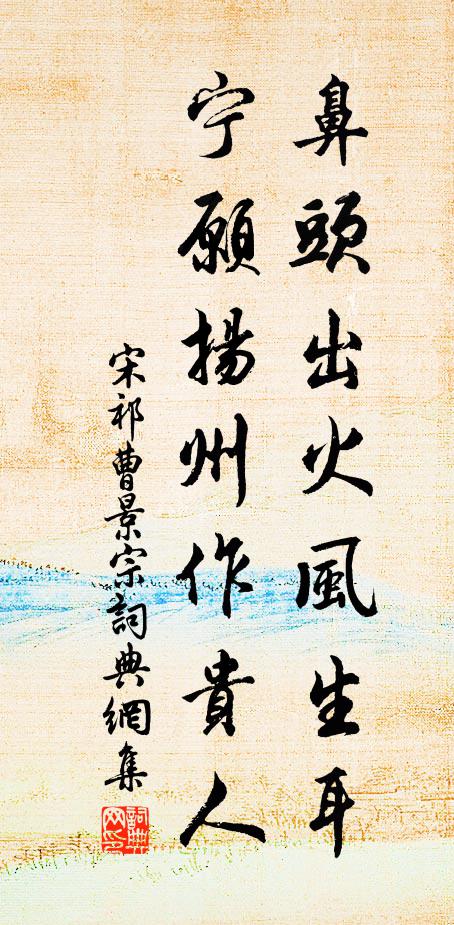 鼻頭出火風生耳
宁願揚州作貴人
宋祁曹景宗詞典網集
詞典网印